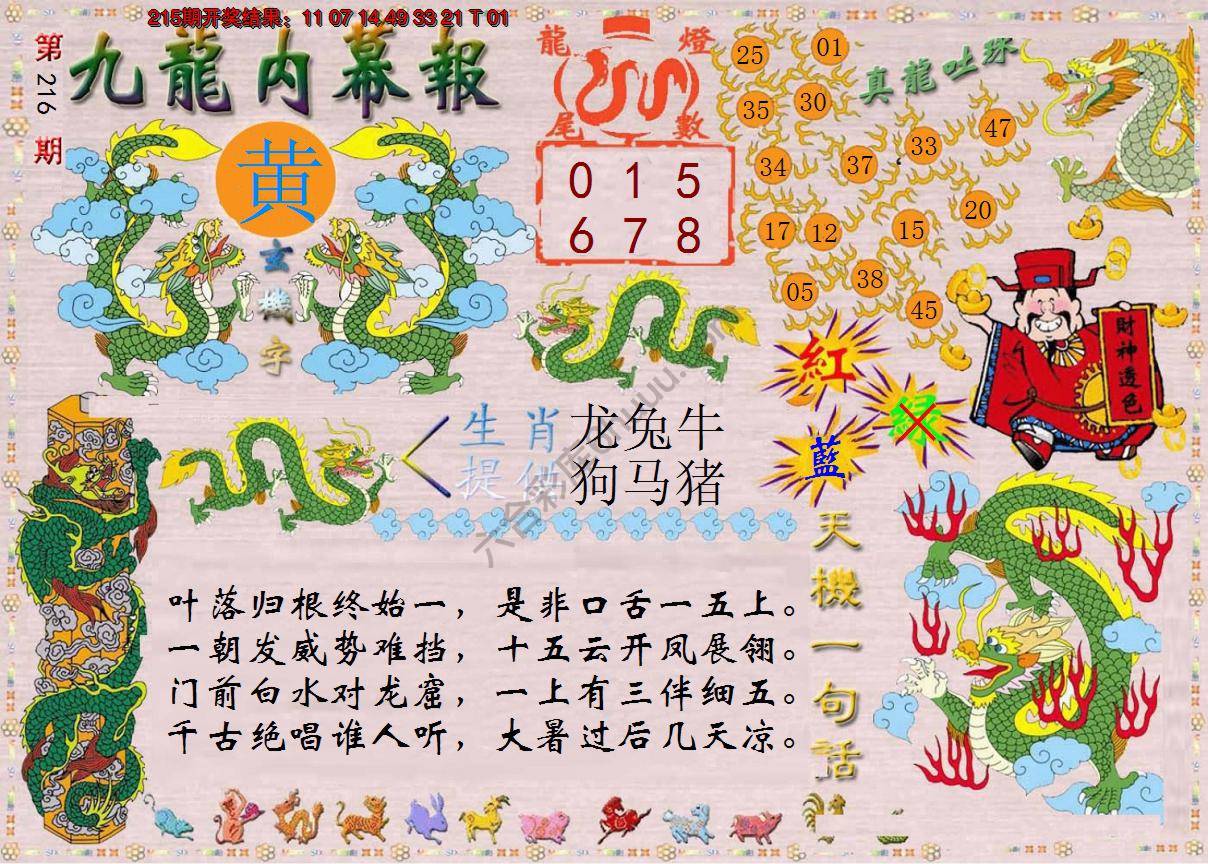 215期开奖结果：11 07 14 49 33 21 T 01
第216期
九龍内幕報
黄
玄機字
龍燈
尾數
0 1 5
6 7 8
真龍吐珠
25
01
35
30
34
37
33
47
17
12
15
20
05
38
45
財神透色
紅
綠
藍
生肖
提供
龙兔牛
狗马猪
天機一句話
叶落归根终始一，是非口舌一五上。
一朝发威势难挡，十五云开凤展翎。
门前白水对龙窟，一上有三伴细五。
千古绝唱谁人听，大暑过后几天凉。